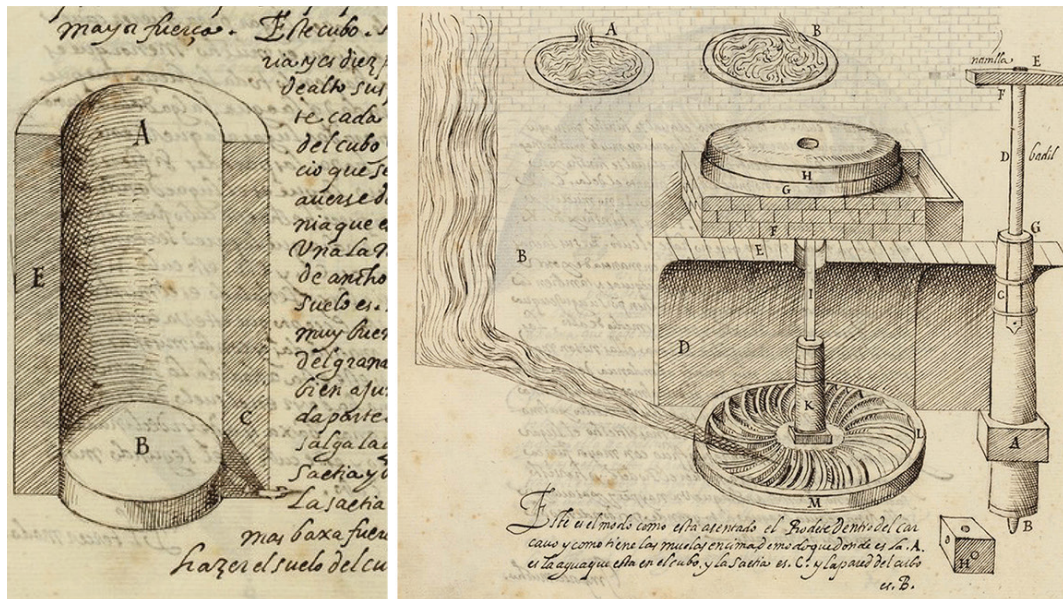 mayor fuerça. Este cubo. s
de alto sus
te cada
del cubo
cio que se
niaque e
Vna La
de ancho
suelo es.
muy buen
del grana
bien aju
da parte
salga la a
saetia y
La saetia
mas baxa fuer
hazer el suelo del cu
A
E
C
B
A
B
namilla
E
F
D
badil
H
G
F
E
G
B
I
G
D
K
L
A
M
B
H
Este es el modo como esta asentado el Rodete Dentro del car
cauo y como tiene las muelas encima demodo que donde es la .A.
es la agua que esta en el cubo, y la saetia es. C. y la pared del cubo
es. B.